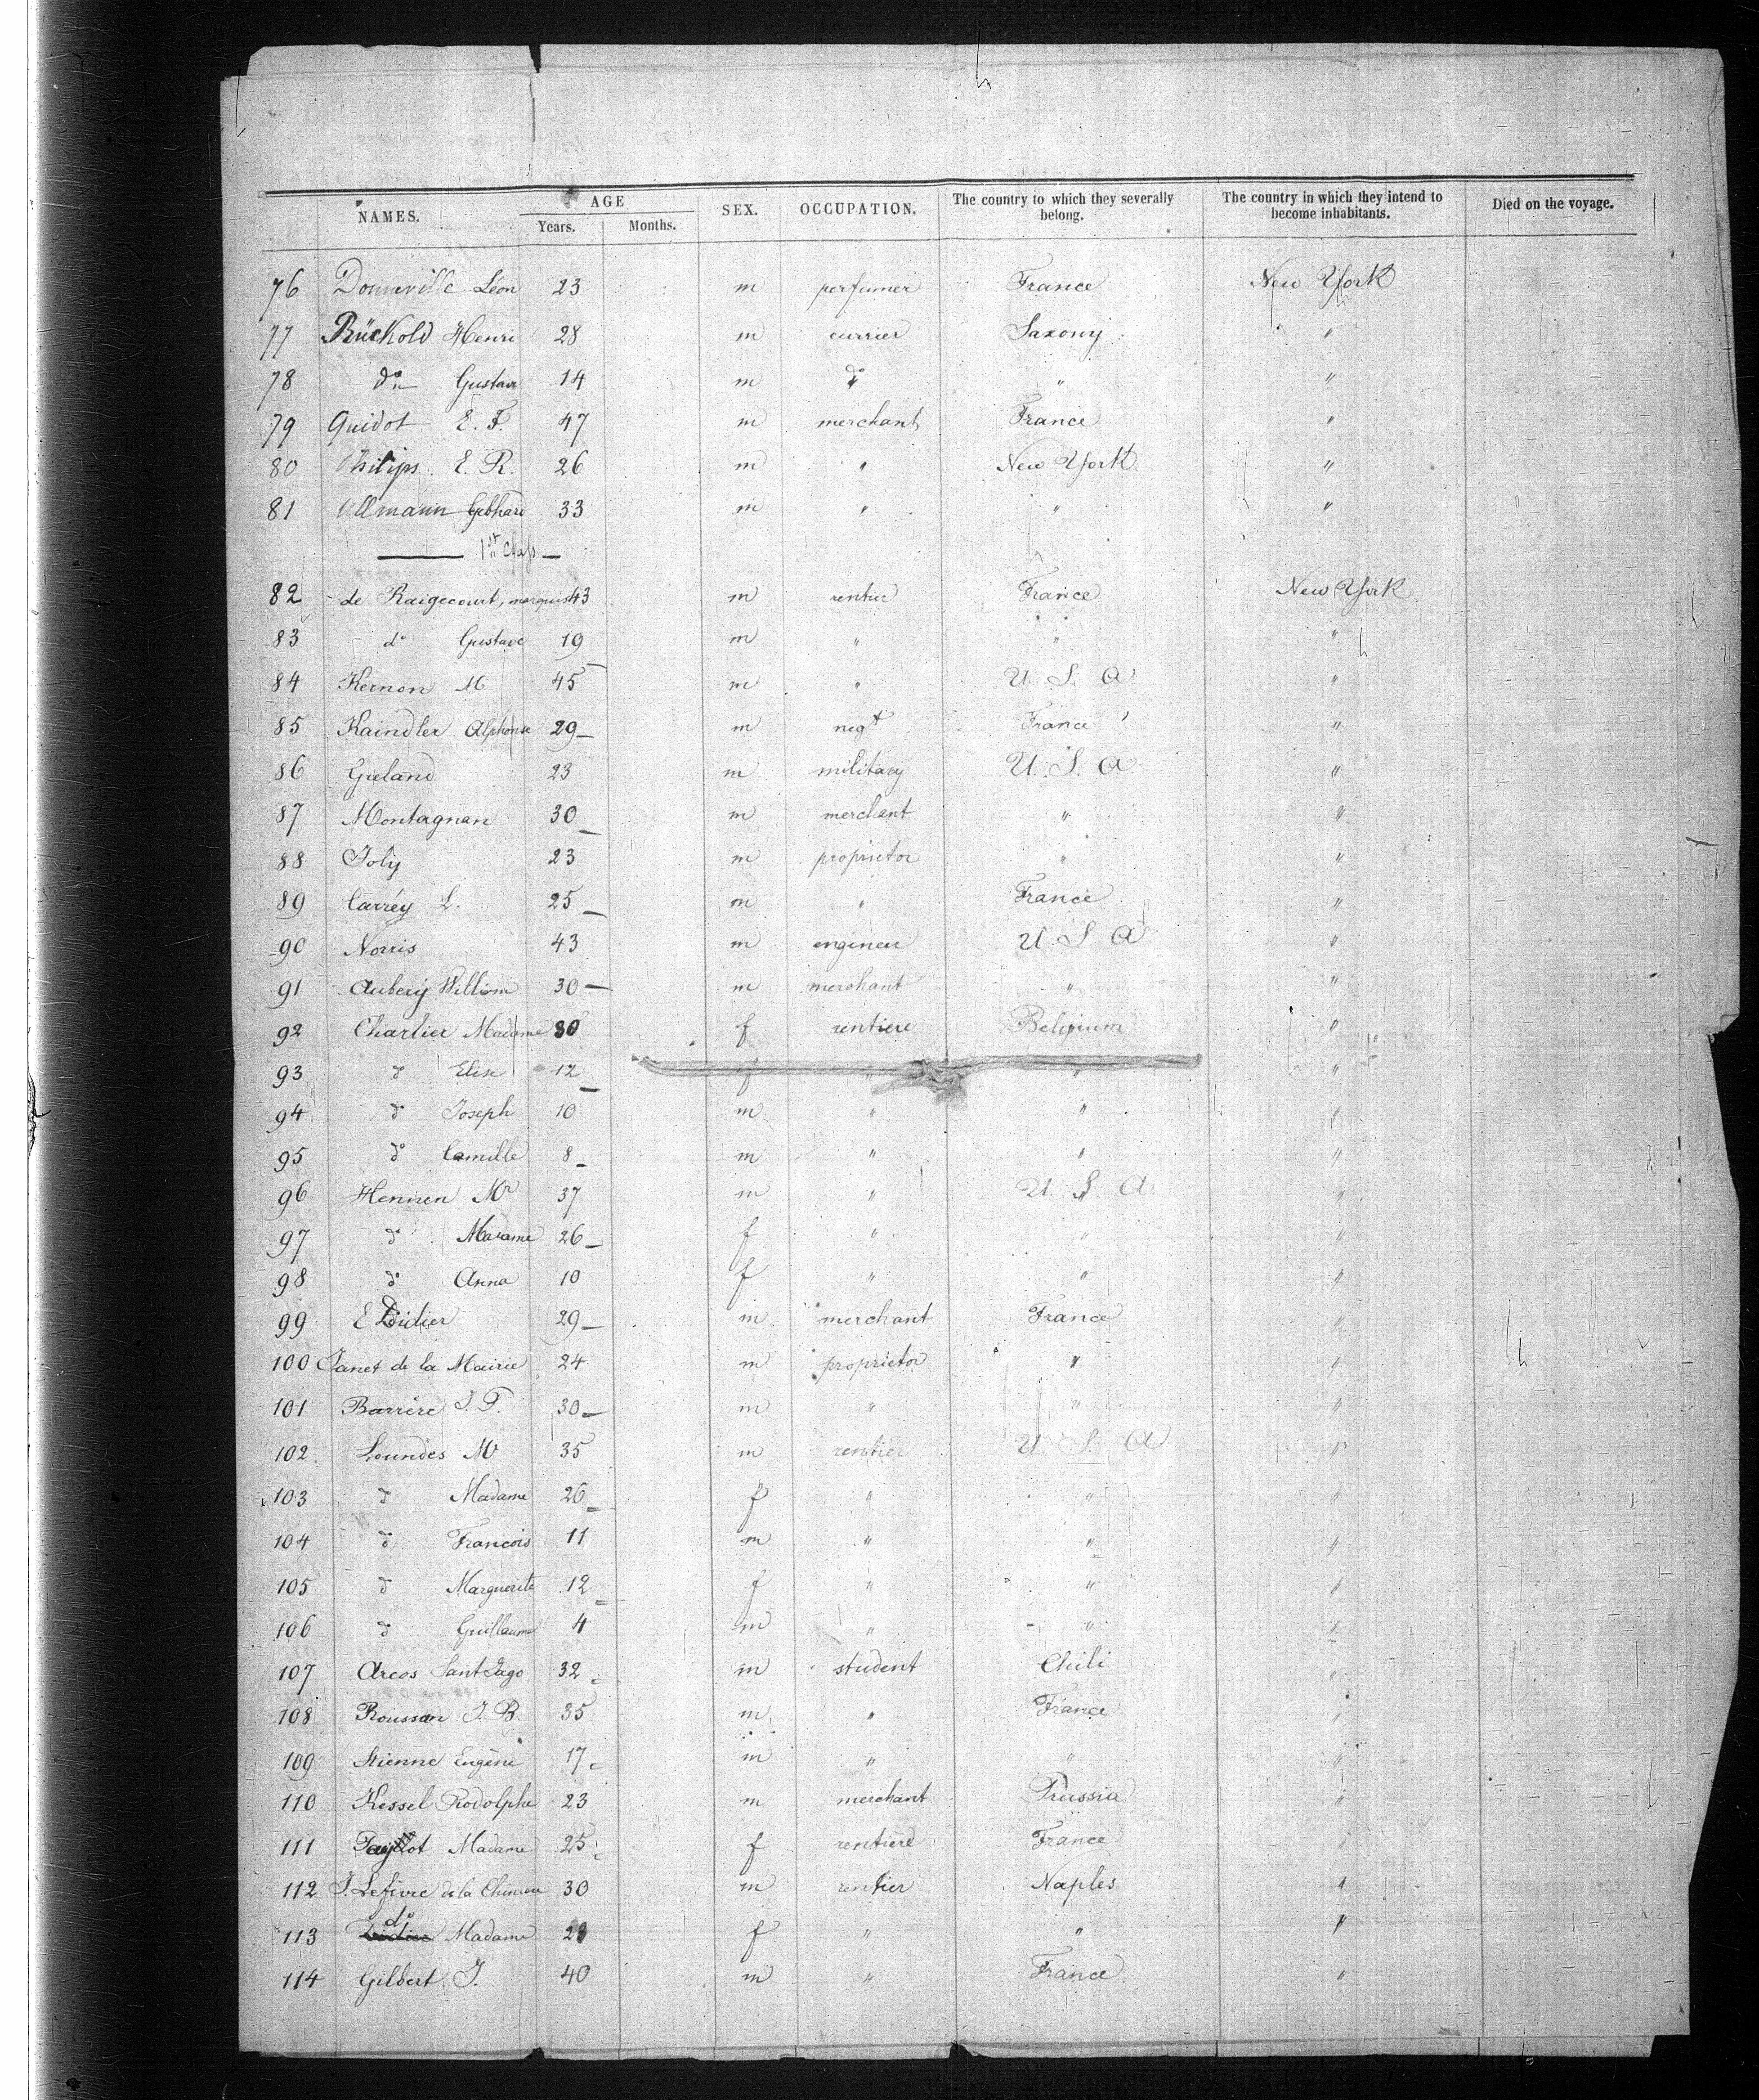 NAMES. AGE SEX. OCCUPATION. The country to which they severally belong. The country in which they intend to become inhabitants. Died on the voyage.
Years. Months.
76 Donneville Léon 23 m perfumer France New York
77 Rückold Henri 28 m currier Saxony "
78 do Gustave 14 m do " "
79 Guidot E. F. 47 m merchant France "
80 Philips E. R. 26 m " New York "
81 Ullmann Gebhard 33 m " " "
1st Class
82 de Raigecourt, marquis 43 m rentier France New York
83 do Gustave 19 m " " "
84 Kernon M 45 m " U. S. A "
85 Kaindler Alphonse 29 m negt France "
86 Greland 23 m military U. S. A "
87 Montagnan 30 m merchant " "
88 Joly 23 m proprietor " "
89 Carréy L. 25 m " France "
90 Norris 43 m engineer U. S A "
91 Aubery William 30 m merchant " "
92 Charlier Madame 30 f rentiere Belgium "
93 do Elise 12 f " " "
94 do Joseph 10 m " " "
95 do Camille 8 m " " "
96 Hennen Mr 37 m " U. S. A "
97 do Madame 26 f " " "
98 do Anna 10 f " " "
99 E Didier 29 m merchant France "
100 Janet de la Mairie 24 m proprietor " "
101 Barrère J. P. 30 m " " "
102 Loundes Mr 35 m rentier U. S. A "
103 do Madame 26 f " " "
104 do Francois 11 m " " "
105 do Marguerite 12 f " " "
106 do Guillaume 4 m " " "
107 Arcos Sant Jago 32 m student Chili "
108 Roussan J. B. 35 m " France "
109 Stienne Eugène 17 m " " "
110 Kessel Rodolphe 23 m merchant Prussia "
111 Madame 25 f rentière France "
112 J. Lefèvre de la 30 m rentier Naples "
113 do Madame 28 f " " "
114 Gilbert J. 40 m " France "